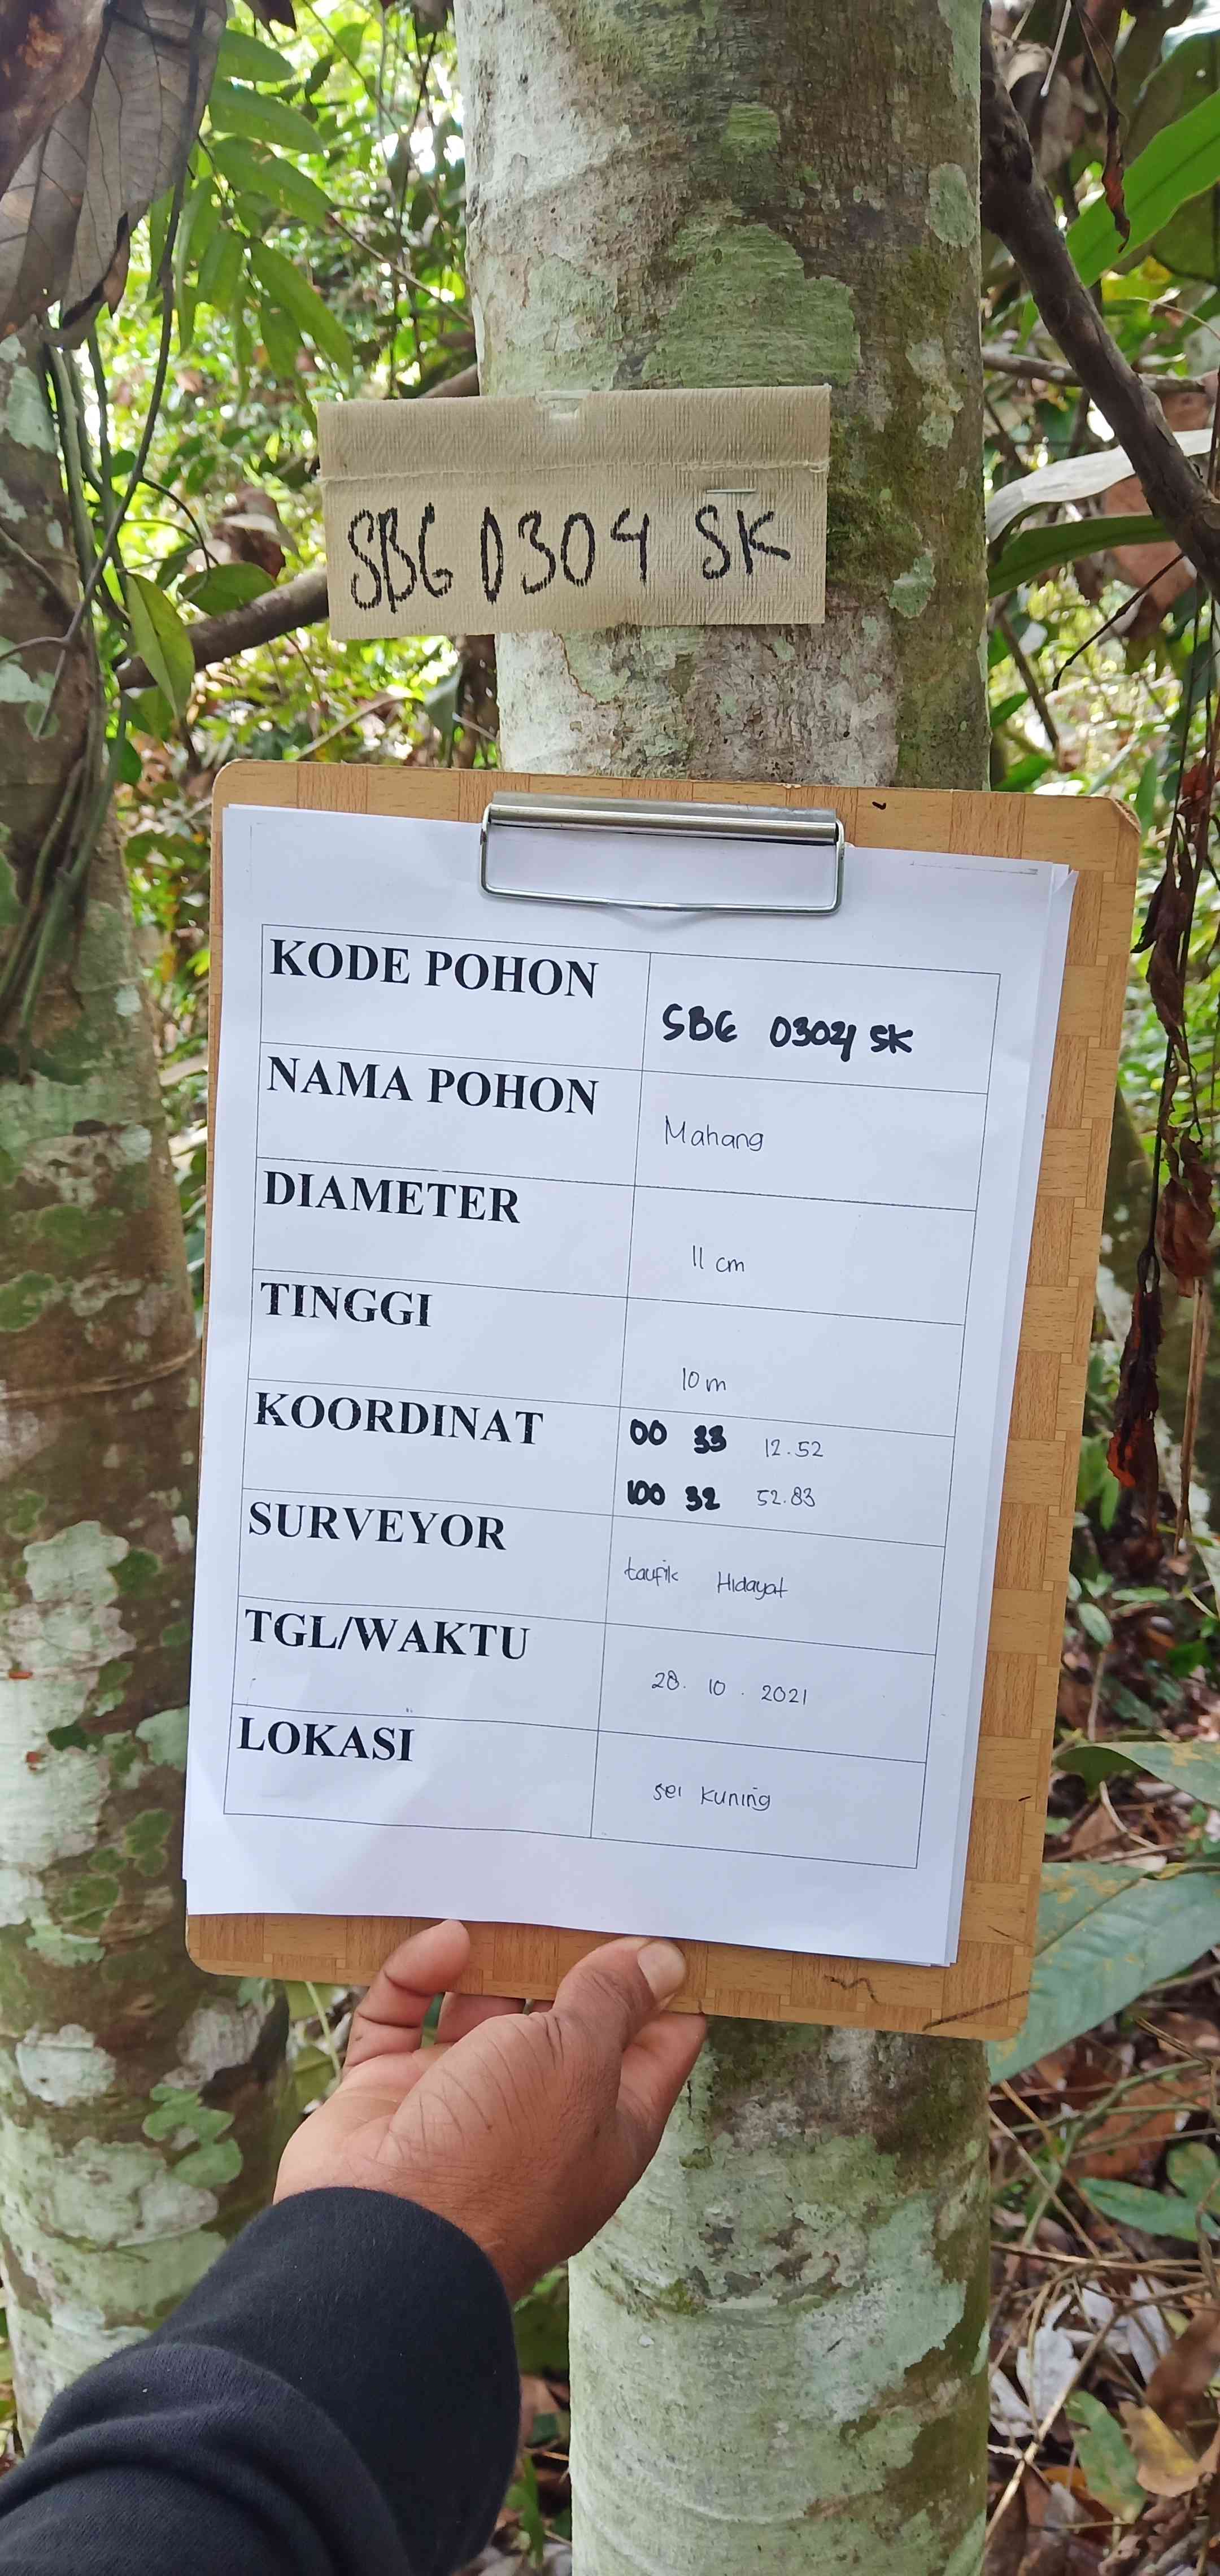 SBG 0304 SK
KODE POHON
SBG 0304 SK
NAMA POHON
Mahang
DIAMETER
11 cm
TINGGI
10 m
KOORDINAT
00 33 12.52
100 32 52.83
SURVEYOR
taufik Hidayat
TGL/WAKTU
28. 10 . 2021
LOKASI
sei kuning